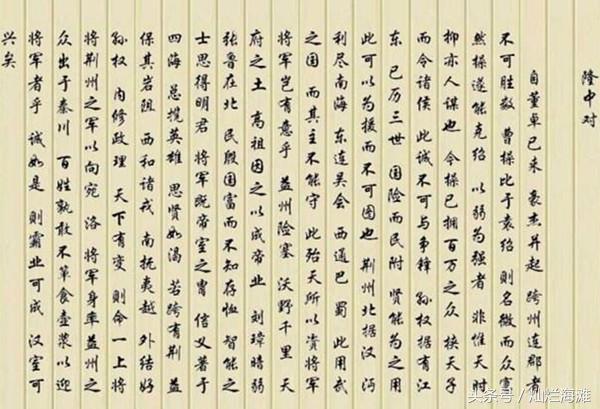 隆中对
自董卓已来 豪杰并起 跨州连郡者
不可胜数 曹操比于袁绍 则名微而众寡
然操遂能克绍 以弱为强者 非惟天时
抑亦人谋也 今操已拥百万之众 挟天子
而令诸侯 此诚不可与争锋 孙权据有江
东 已历三世 国险而民附 贤能为之用
此可以为援而不可图也 荆州北据汉 沔
利尽南海 东连吴会 西通巴 蜀 此用武
之国 而其主不能守 此殆天所以资将军
将军岂有意乎 益州险塞 沃野千里 天
府之土 高祖因之以成帝业 刘璋暗弱
张鲁在北 民殷国富而不知存恤 智能之
士思得明君 将军既帝室之胄 信义著于
四海 总揽英雄 思贤如渴 若跨有荆 益
保其岩阻 西和诸戎 南抚夷越 外结好
孙权 内修政理 天下有变 则命一上将
将荆州之军以向宛 洛 将军身率益州之
众出于秦川 百姓孰敢不箪食壶浆以迎
将军者乎 诚如是 则霸业可成 汉室可
兴矣
头条号/灿烂海滩